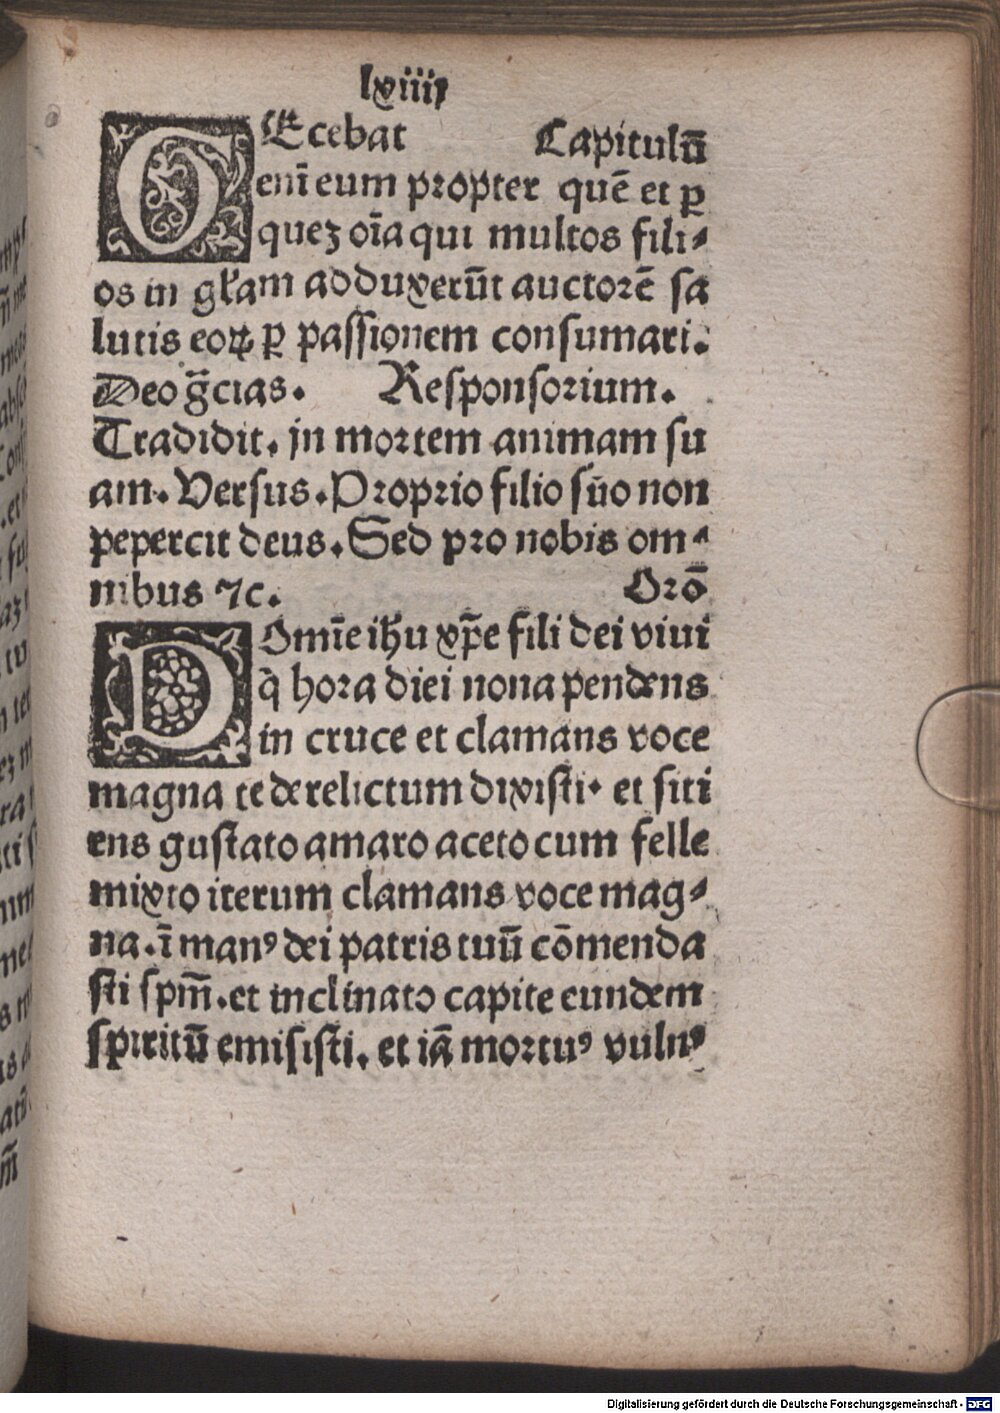 lxiiij
DEcebat Capitulū
enī eum propter quē et ꝑ
quez oīa qui multos fili⸗
os in gƚam adduxerūt auctorē sa
lutis eoꝝ ꝑ passionem consumari.
Deo gr̄cias. Responsorium.
Tradidit. in mortem animam su
am. Versus. Proprio filio suo non
pepercit deus. Sed pro nobis om⸗
nibus ⁊c. Orō
DOmīe ihu xp̄e fili dei viui
q̄ hora diei nona pendens
in cruce et clamans voce
magna te derelictum dixisti. et siti
ens gustato amaro aceto cum felle
mixto iterum clamans voce mag⸗
na. ī manꝰ dei patris tuū cōmenda
sti spm̄. et inclinato capite eundem
spiritū emisisti. et iā mortuꝰ vulnꝰ
Digitalisierung gefördert durch die Deutsche Forschungsgemeinschaft - DFG